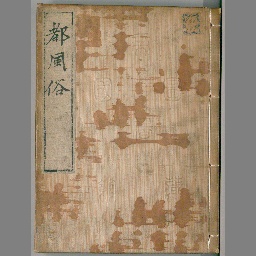 都風俗